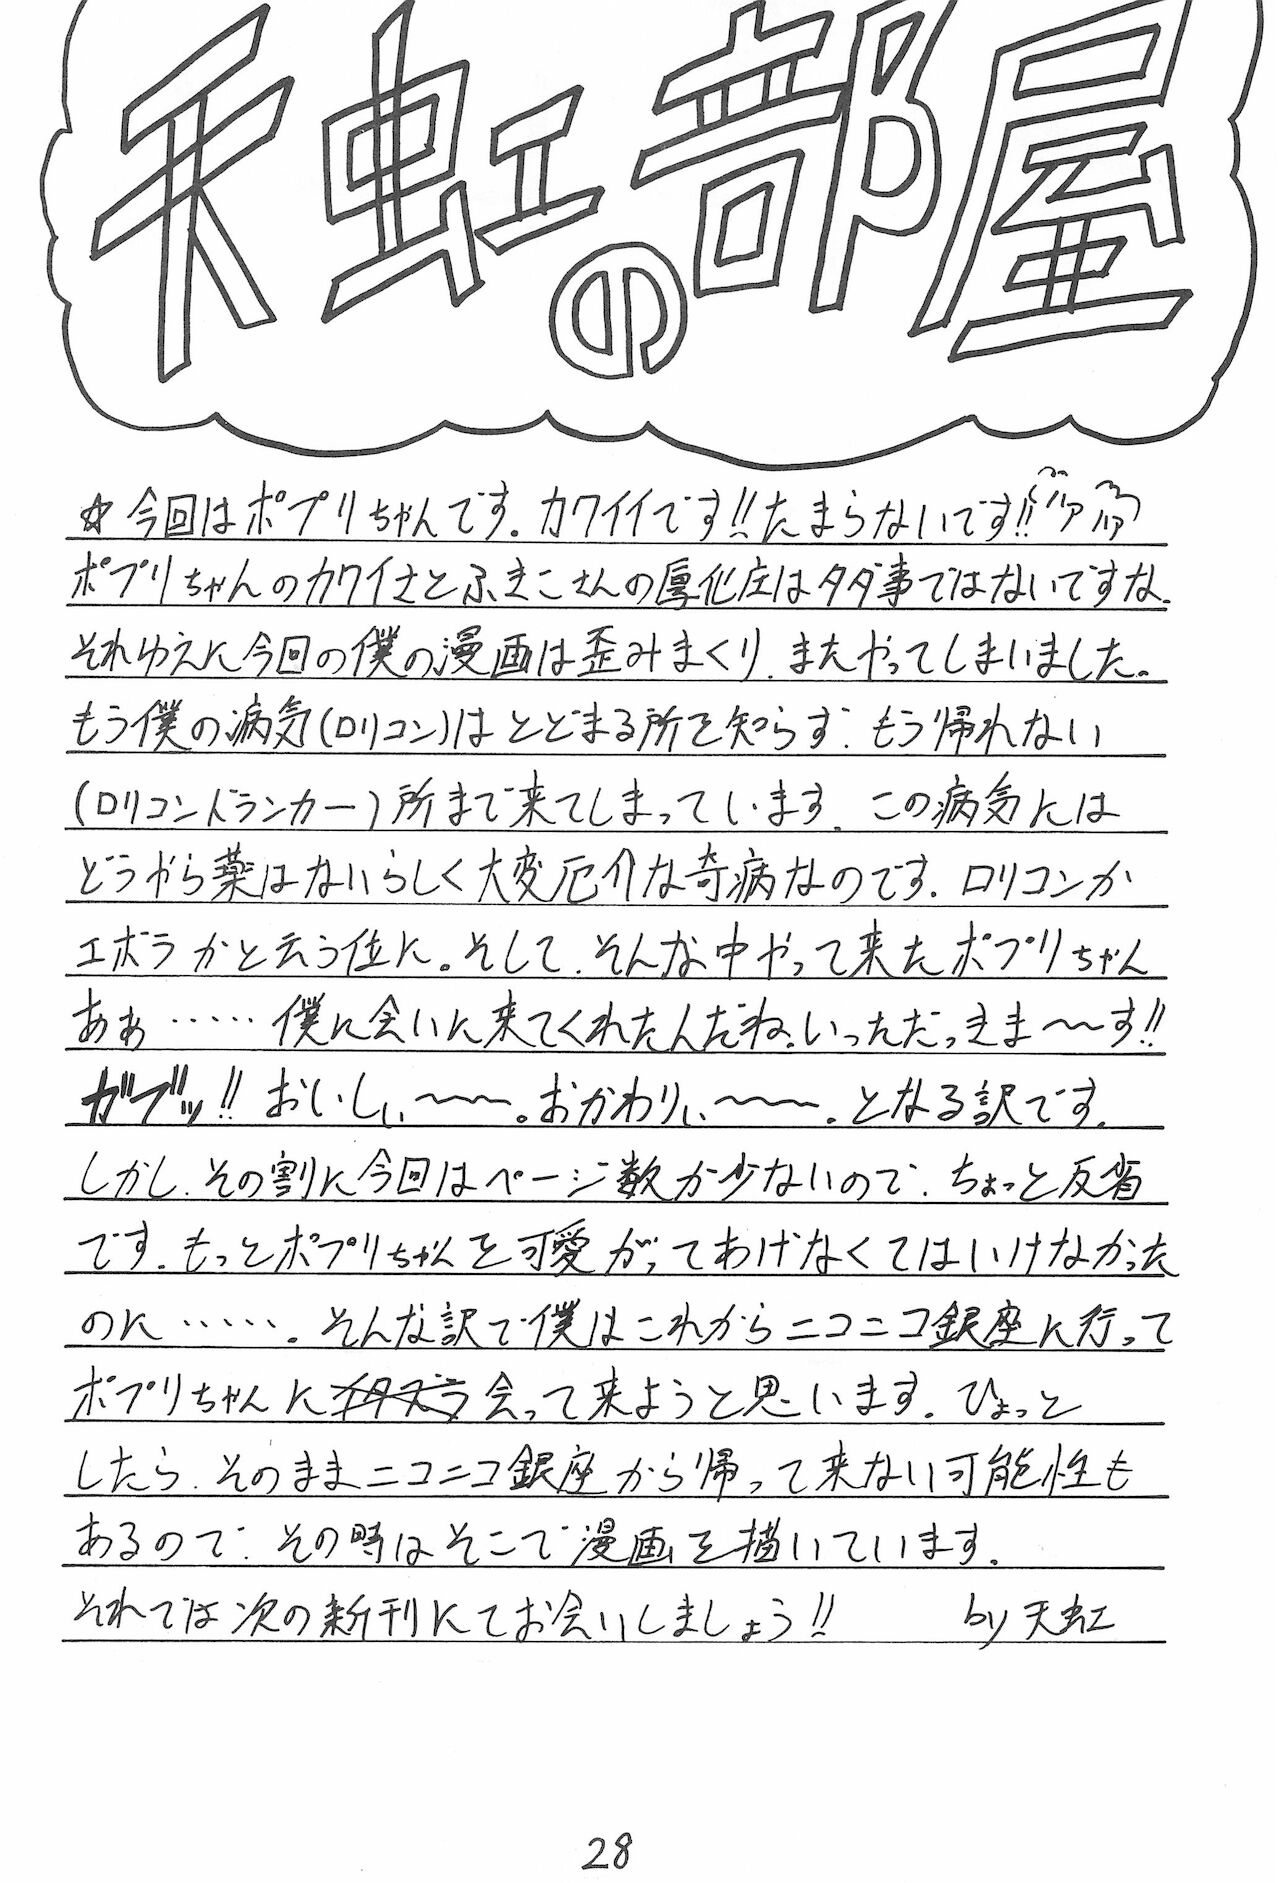 天虹の部屋
☆今回はポプリちゃんです。カワイイです!!たまらないです!!ハァハァ
ポプリちゃんのカワイさとふきこさんの厚化粧はタダ事ではないですな。
それゆえに今回の僕の漫画は歪みまくり、またやってしまいました。
もう僕の病気(ロリコン)はとどまる所を知らず、もう帰れない
(ロリコンドランカー)所まで来てしまっています。この病気には
どうやら薬はないらしく大変厄介な奇病なのです。ロリコンか
エボラかと云う位に。そして、そんな中やって来たポプリちゃん
あぁ……僕に会いに来てくれたんだね。いっただっきま〜〜す!!
ガブッ!!おいしぃ〜〜〜。おかわりぃ〜〜〜。となる訳です。
しかし、その割に今回はページ数が少ないので、ちょっと反省
です。もっとポプリちゃんを可愛がってあげなくてはいけなかった
のに……。そんな訳で僕はこれからニコニコ銀座に行って
ポプリちゃんにイタズラ会って来ようと思います。ひょっと
したら、そのままニコニコ銀座から帰って来ない可能性も
あるので、その時はそこで漫画を描いています。
それでは次の新刊にてお会いしましょう!! by 天虹
28